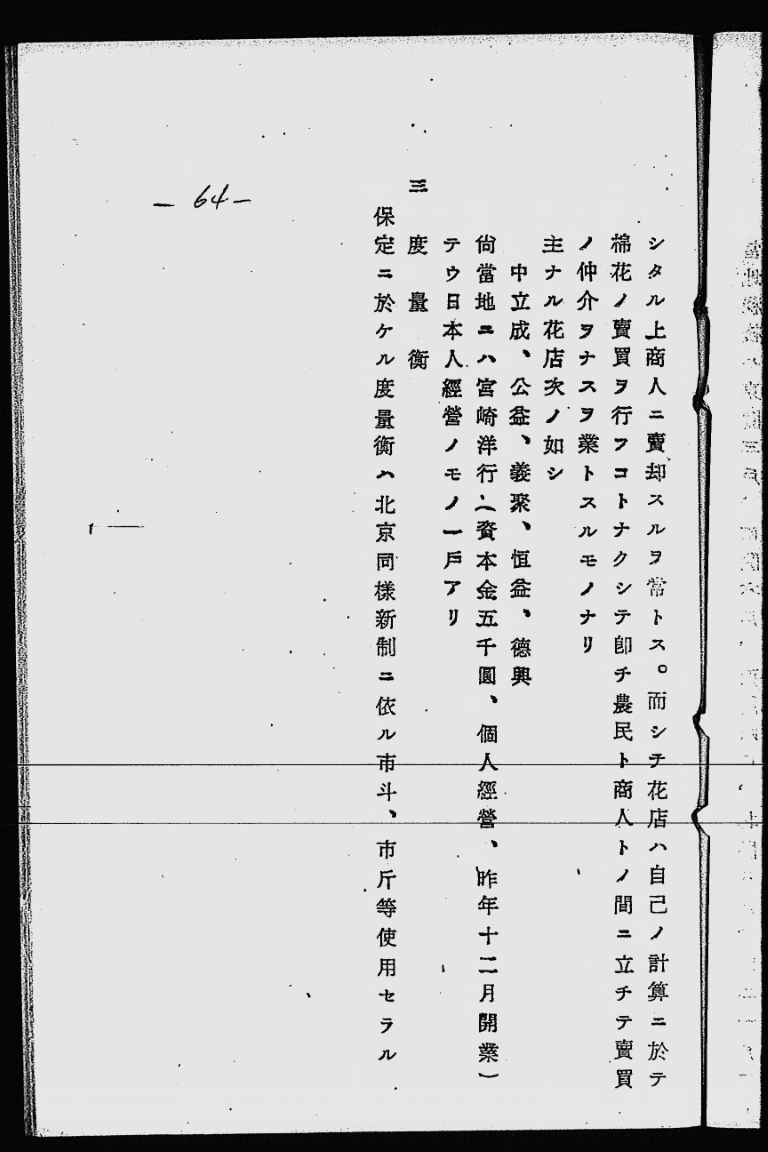 シタル上商人ニ賣却スルヲ常トス。而シテ花店ハ自己ノ計算ニ於テ
棉花ノ賣買ヲ行フコトナクシテ卽チ農民ト商人トノ間ニ立チテ賣買
ノ仲介ヲナスヲ業トスルモノナリ
主ナル花店次ノ如シ
中立成、公益、義聚、恒益、德興
尙當地ニハ宮崎洋行(資本金五千圓、個人經營、昨年十二月開業)
テウ日本人經營ノモノ一戶アリ
三 度量衡
保定ニ於ケル度量衡ハ北京同樣新制ニ依ル市斗、市斤等使用セラル
- 64 -